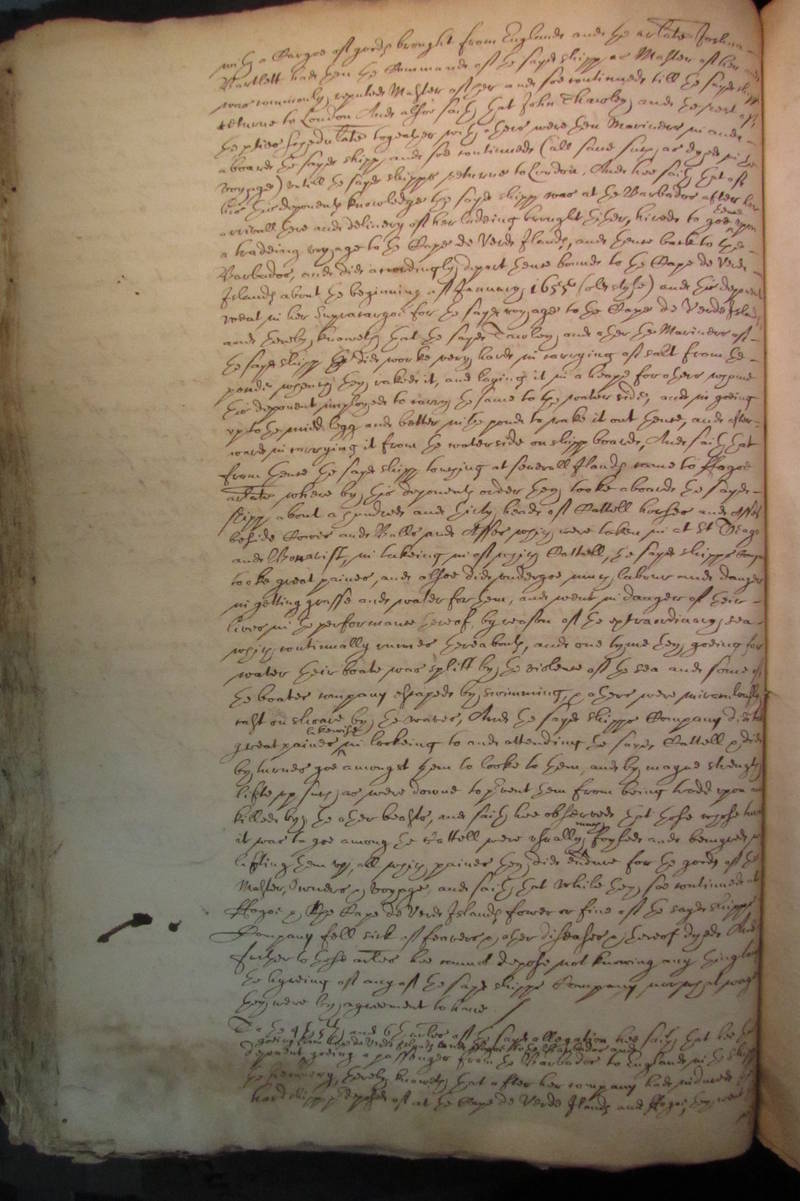 with a Cargoe of goods brought from England and the arlate Joshua
Bartlett had then the Command of the sayd shipp as Master of her and
was commonly reputed Master of her and soe continued till the sayd shipps
returne to London And alsoe saith that John Thawley and the rest of
the parties scedulate together with others were then Mariners in and
aboard the sayd shipp, and soe continued (all save such as dyed in the
voyage) untill the sayd shipps returne to London. And hee saith that of
his this deponents knowledge the sayd shipp was at the Barbados after her
arrivall there and delivery of her ladeing brought thither, hired to goe thence upon
a tradeing voyage to the Cape de Verde Islands, and thence back to the
Barbados, and did accordingly depart thence bound to the Cape de Verde
Islands about the beginning of January 1655 (old style) and this deponent
went in her Supracargoe for the sayd voyage to the Cape de Verde Islands
and thereby knoweth that the sayd Tawley and other the Mariners of
the sayd shipp did worke very hard in carrying of salt from the
ponds where they raked it, and laying it in a heape for others whome
this deponent imployed to carry the same to the water side, and in goeing
up to the midd legg and better in the pond to rake it out thence, and after-
ward in carrying it from the waterside on shipp board, And saith that
from thence the sayd shipp touching at severall Islands came to ffogoe
arlate where by this deponents order they tooke aboard the sayd
shipp about a hundred and thirty head of Cattell horses and Asses
beside Cowes and Bulls and Asses which were taken in at St Iago
and Bonavist, in takeing in of which Cattell, the sayd shipps Company
tooke great paines, and alsoe did undergoe much labour and danger
in getting grasse and water for them, and went in danger of their
lives in the performance thereof, by reason of the extraordinary sea
which continually runnes thereabouts, and one tyme they goeing for
water their boate was splitt by the violence of the sea and some of
the boates company escaped by swimming, & others were miraculously
cast on shoare by the waves, And the sayd shipps Company did take
great paines likewise in lookeing to and attending the sayd Cattell & did
by turnes goe amongst them to looke to them, and by mayne strength
lifte up such as were downe to prevent them from being trodd upon and
killed by the other beasts, and saith hee observed that those whose turne
it was to goe among the Cattell were usually much and bemyred in
lifting them up, all which paines they did endure for the good of the
Master, Owners & voyage, and saith that while they soe continued at
ffogoe & the Cape de Verde Islands fower or five of the sayd shipps
Company fell sick of feavers & other diseases & thereof dyed And
further to those articles hee cannot depose not knowing any thing of
the hyreing of any of the sayd shipps Company nor what wages
they were by agreement to have
To the 4th 5th and 6th articles of the sayd allegation hee saith that hee this
goeing from Cape de Verde Islands to the Barbados and
deponent goeing a passenger from the Barbados to England in the shipp
thereby knoweth that after her company had indured the
hard shipp deposed of at the Cape de Verde Islands and ffogoe, they were